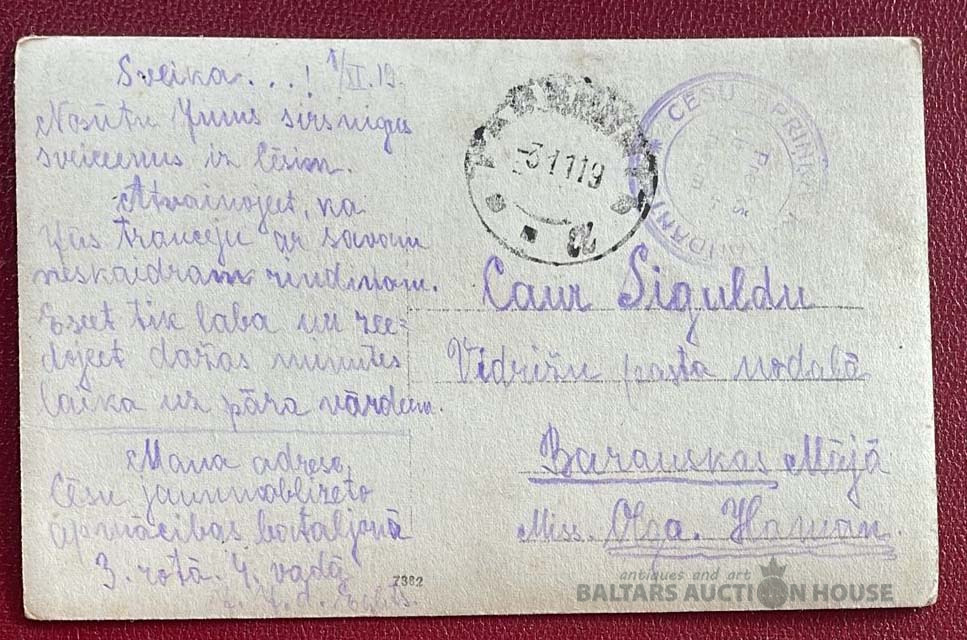 Sveika...! 1/XI.19.
Nosūtu Jums sirsnigus
sveicenus iz Cēsim.
Atvainojeet, ka
Jūs traucēju ar savam
neskaidram rindinam.
Eseet tik laba un zee-
dojeet dažas minutes
laika uz pāra vārdeem.
Mana adrese,
Cēsu jaunmoblizeto
apmācibas bataljonā
3. rotā. 4. vadā
7382
-3 11 19
a
CĒSU APRIŅĶA
Caur Siguldu
Vidrižu pasta nodaļā
Barauskas Mājā
Miss. Olga. Haman.
antiques and art
BALTARS AUCTION HOUSE